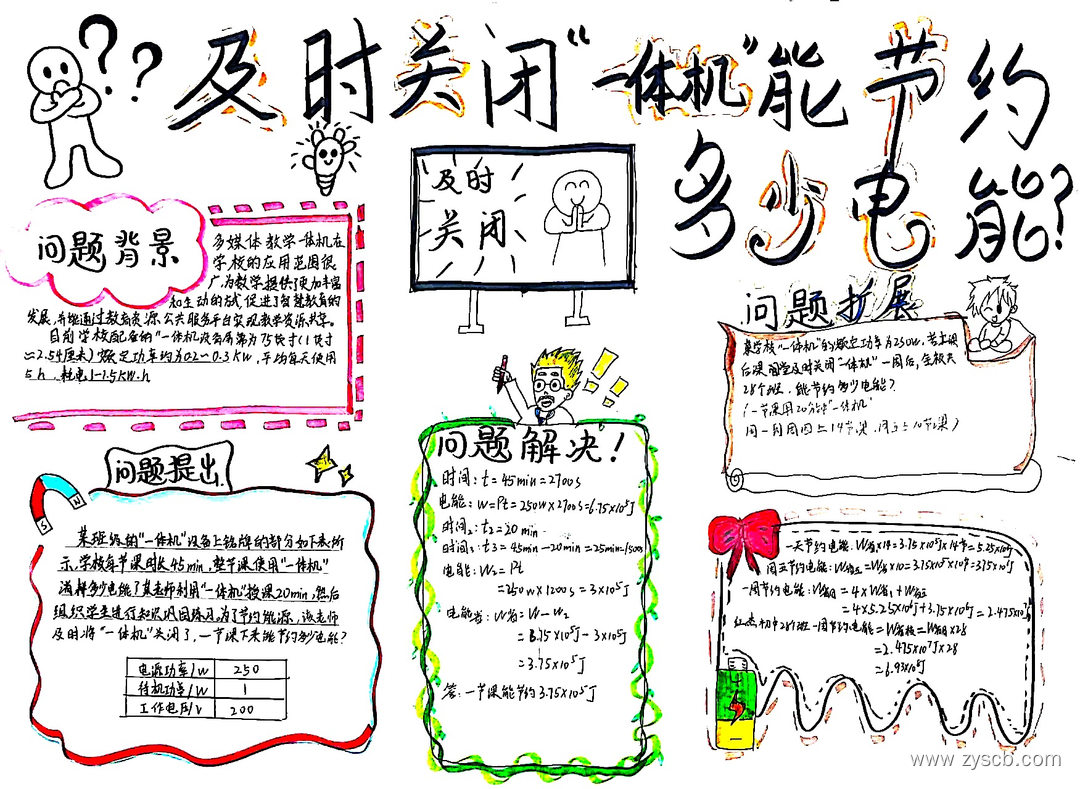 及时关闭“一体机”能节约
多少电能?
及时
关闭
问题背景
多媒体教学一体机在
学校的应用范围很
广,为教学提供了更加丰富
和生动的方式,促进了智慧教育的
发展,并能通过教育资源公共服务平台实现教学资源共享。
目前学校配备的“一体机设备屏幕为75英寸(1英寸
≈2.54厘米)额定功率约为0.2~0.3KW,平均每天使用
5h,耗电1-1.5KW·h
问题提出
某班级的“一体机”设备上铭牌的部分如下表所
示,学校每节课时长45min,整节课使用“一体机”
消耗多少电能?某老师利用“一体机”授课20min,然后
组织学生进行知识巩固练习,为了节约能源,该老师
及时将“一体机”关闭了,一节课下来能节约多少电能?
电源功率/W 250
待机功率/W 1
工作电压/V 200
问题解决!
时间:t=45min=2700s
电能:W=Pt=250W×2700s=6.75×10⁵J
时间₂:t₂=20min
时间₃:t3=45min-20min=25min=1500s
电能:W₂=Pt
=250W×1200s=3×10⁵J
电能省:W省=W-W₂
=6.75×10⁵J-3×10⁵J
=3.75×10⁵J
答:一节课能节约3.75×10⁵J
问题扩展
某学校“一体机”的额定功率为250W,若主课
后课间尝及时关闭“一体机”一周后,全校共
28个班,能节约多少电能?
(一节课用20分钟“一体机”
周一到周四上14节课,周五上10节课)
一天节约电能:W省×14=3.75×10⁵J×14节=5.25×10⁶J
周五节约电能:W省五=W省×10=3.75×10⁵J×10节=3.75×10⁶J
一周节约电能:W省周=4×W省1+W省五
=4×5.25×10⁶J+3.75×10⁶J=2.475×10⁷J
初中28个班一周节约电能=W省校=W省周×28
=2.475×10⁷J×28
=6.93×10⁸J
www.zyscb.com